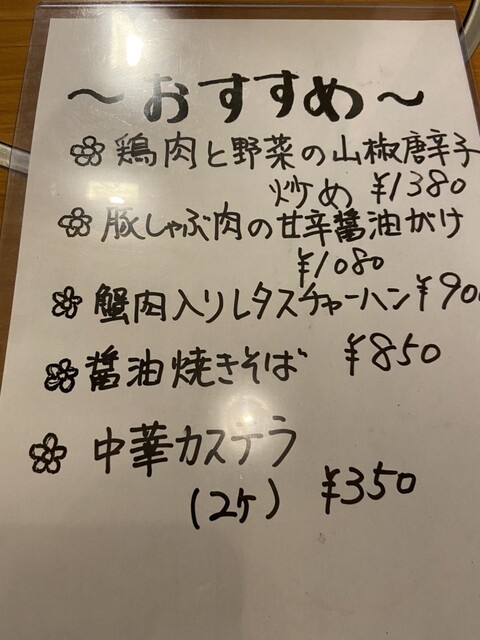 ～おすすめ～
鶏肉と野菜の山椒唐辛子
炒め ¥1380
豚しゃぶ肉の甘辛醤油がけ
¥1080
蟹肉入りレタスチャーハン ¥900
醤油焼きそば ¥850
中華カステラ
(2ケ) ¥350